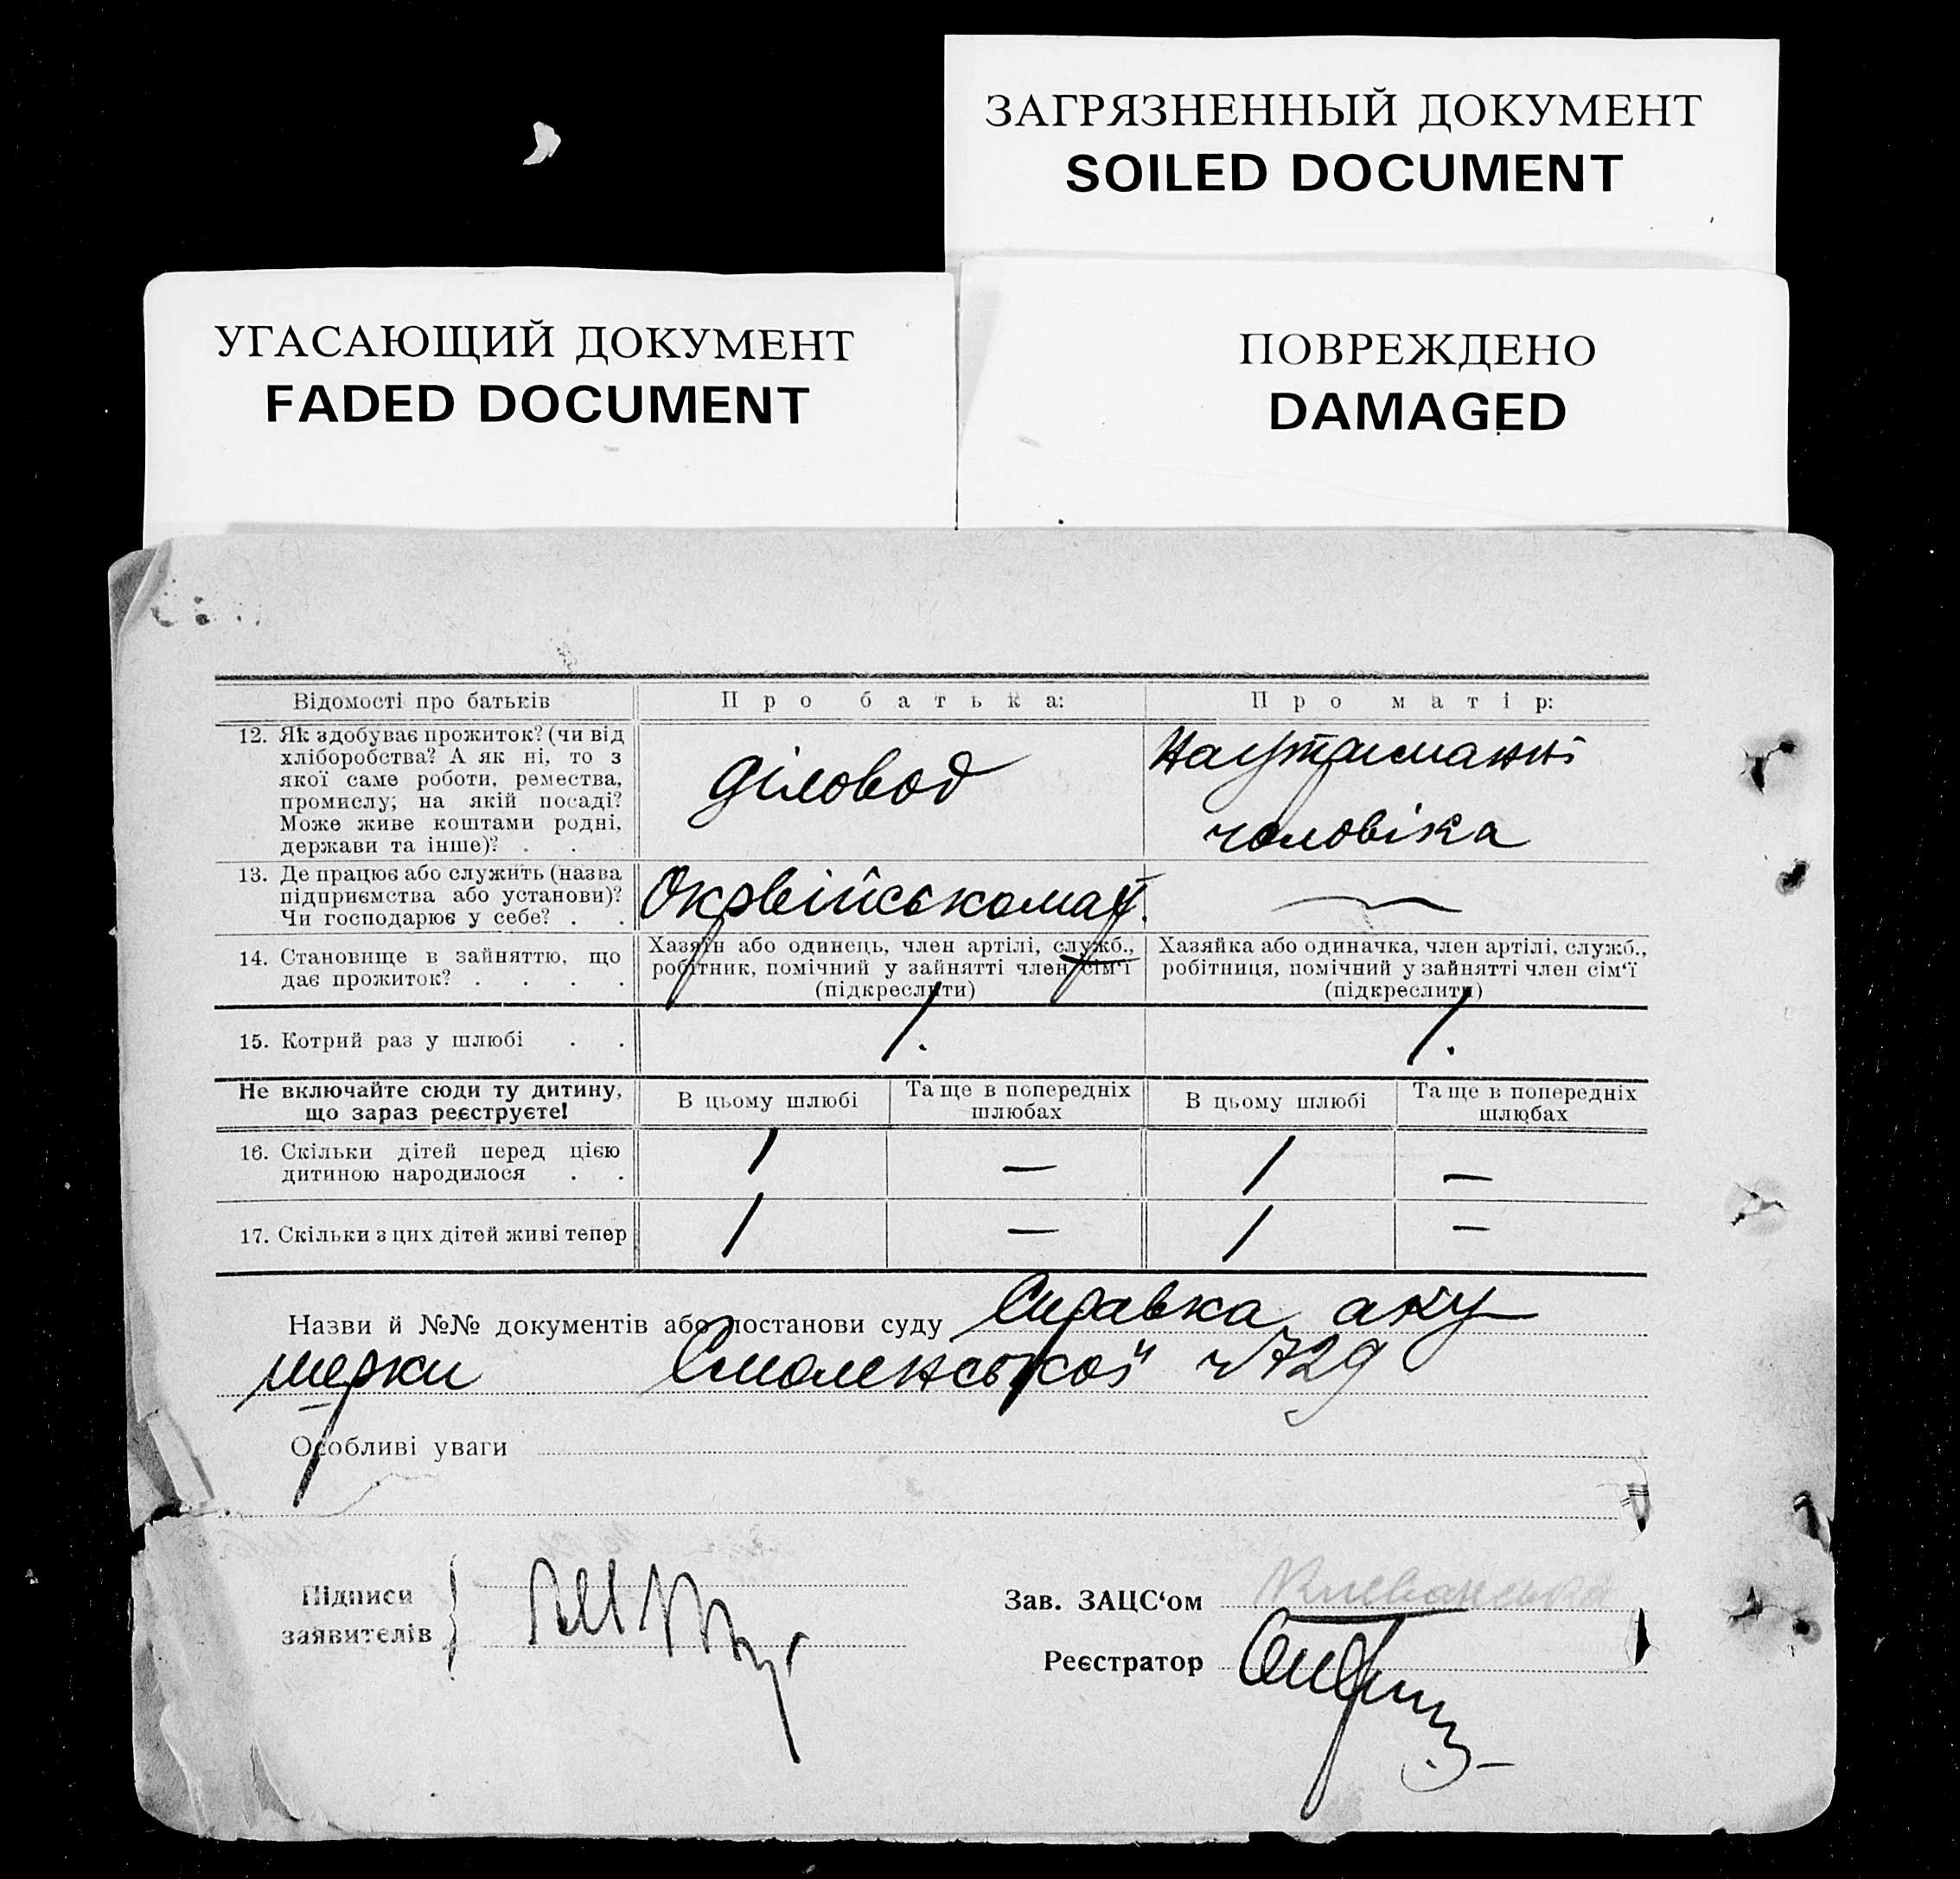 ЗАГРЯЗНЕННЫЙ ДОКУМЕНТ
SOILED DOCUMENT
УГАСАЮЩИЙ ДОКУМЕНТ
FADED DOCUMENT
ПОВРЕЖДЕНО
DAMAGED
Відомості про батьків
Про батька:
Про матір:
12. Як здобуває прожиток? (чи від
хліборобства? А як ні, то з
якої саме роботи, ремества,
промислу; на якій посаді?
Може живе коштами родні,
держави та інше)? . .
діловод
На утриманні
чоловіка
13. Де працює або служить (назва
підприємства або установи)?
Чи господарює у себе? . .
Окрвійськомат.
—
14. Становище в зайняттю, що
дає прожиток? . . . .
Хазяїн або одинець, член артілі, служб.,
робітник, помічний у зайнятті член сім'ї
(підкреслити)
Хазяйка або одиначка, член артілі, служб.,
робітниця, помічний у зайнятті член сім'ї
(підкреслити)
15. Котрий раз у шлюбі . .
1.
1.
Не включайте сюди ту дитину,
що зараз реєструєте!
В цьому шлюбі
Та ще в попередніх
шлюбах
В цьому шлюбі
Та ще в попередніх
шлюбах
16. Скільки дітей перед цією
дитиною народилося . .
1 — 1 —
17. Скільки з цих дітей живі тепер
1 — 1 —
Назви й №№ документів або постанови суду Справка аку
шерки Смоленської №729
Особливі уваги
Підписи
заявителів
Зав. ЗАЦС'ом
Реєстратор